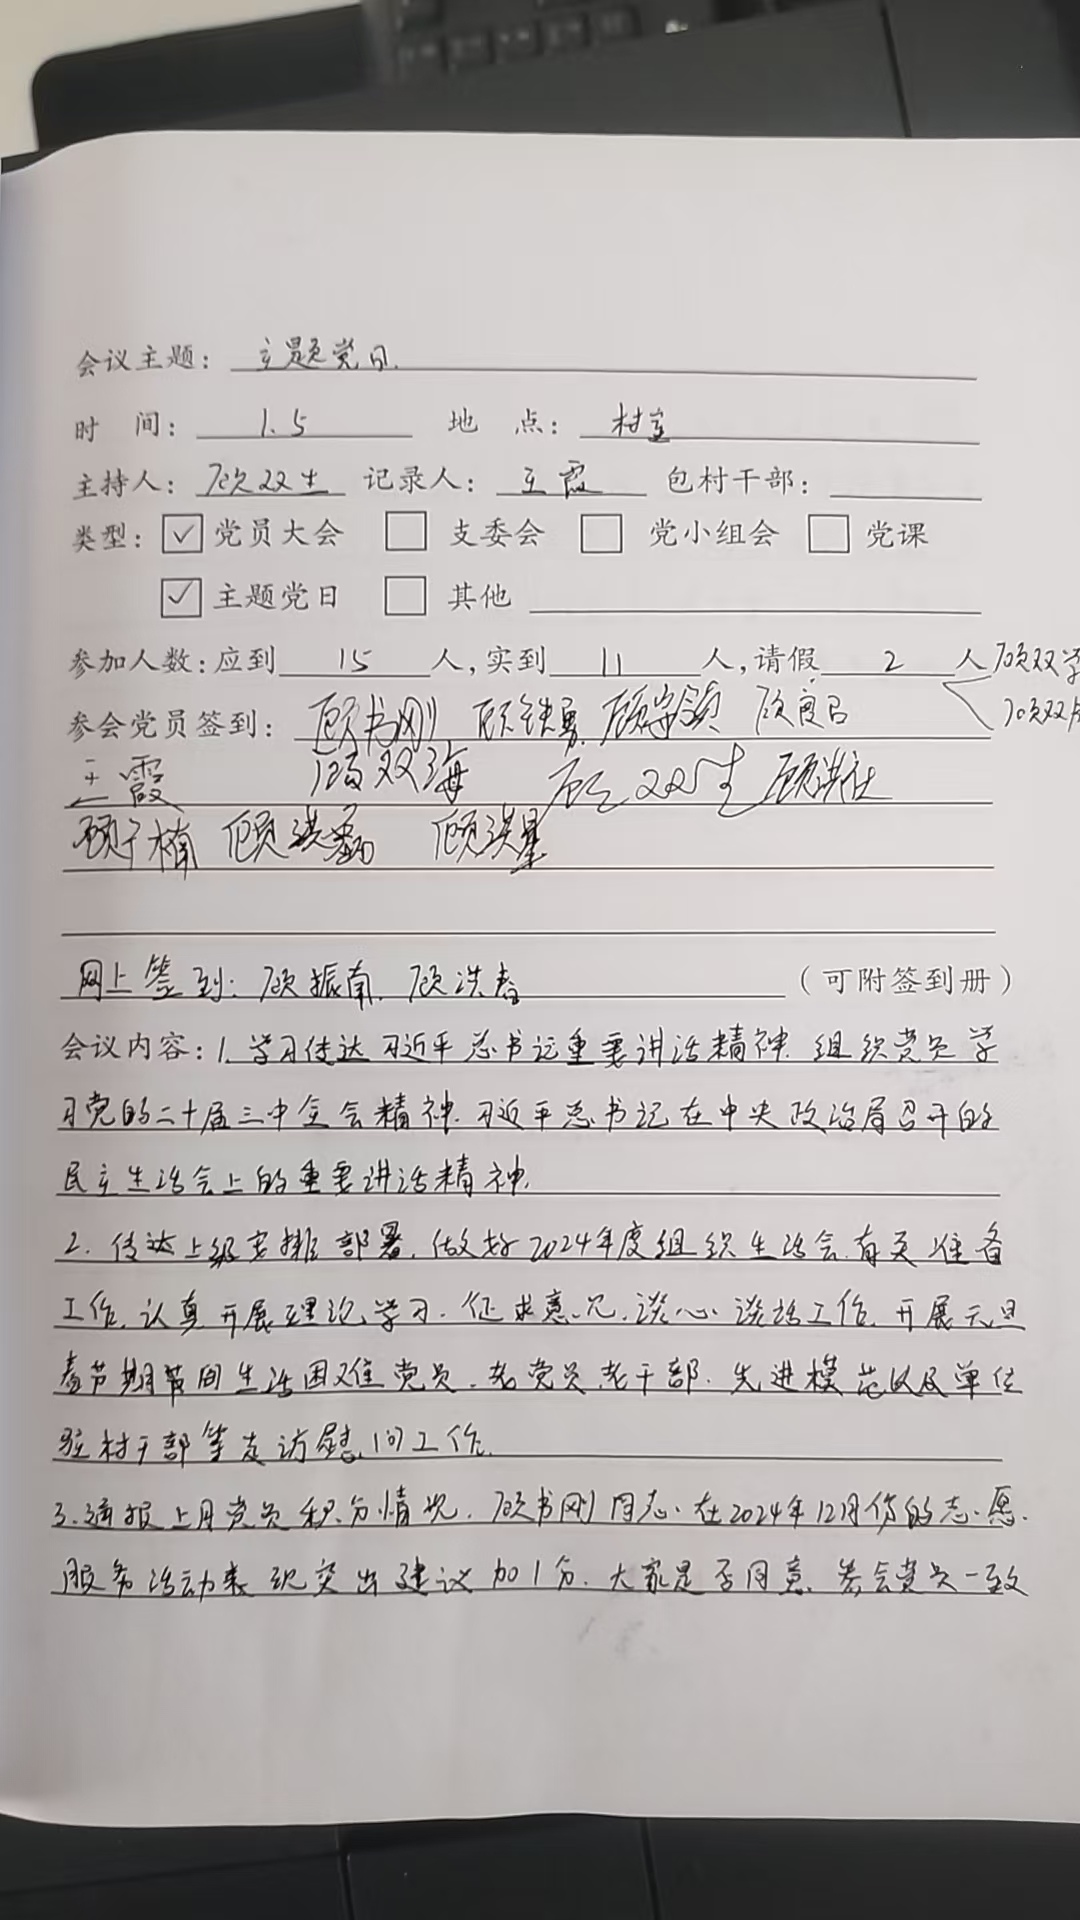 会议主题：主题党日.
时 间：1.5 地 点：村室
主持人：顾双生 记录人：王霞 包村干部：
类型：☑党员大会 □支委会 □党小组会 □党课
☑主题党日 □其他
参加人数：应到15人,实到11人,请假2人 顾双学
顾双
参会党员签到：顾书刚 顾铁勇 顾
王霞 冯双海 顾双生 顾洪社
顾子楠 顾洪勋 顾洪星
网上签到：顾振南、顾洪春（可附签到册）
会议内容：1.学习传达习近平总书记重要讲话精神.组织党员学
习党的二十届三中全会精神.习近平总书记在中央政治局召开的
民主生活会上的重要讲话精神.
2.传达上级安排部署,做好2024年度组织生活会有关准备
工作,认真开展理论学习.征求意见,谈心谈话工作,开展元旦
春节期节间生活困难党员.老党员老干部.先进模范以及单位
驻村干部等走访慰问工作.
3.通报上月党员积分情况.顾书刚同志在2024年12月份的志愿
服务活动表现突出建议加1分.大家是否同意.参会党员一致